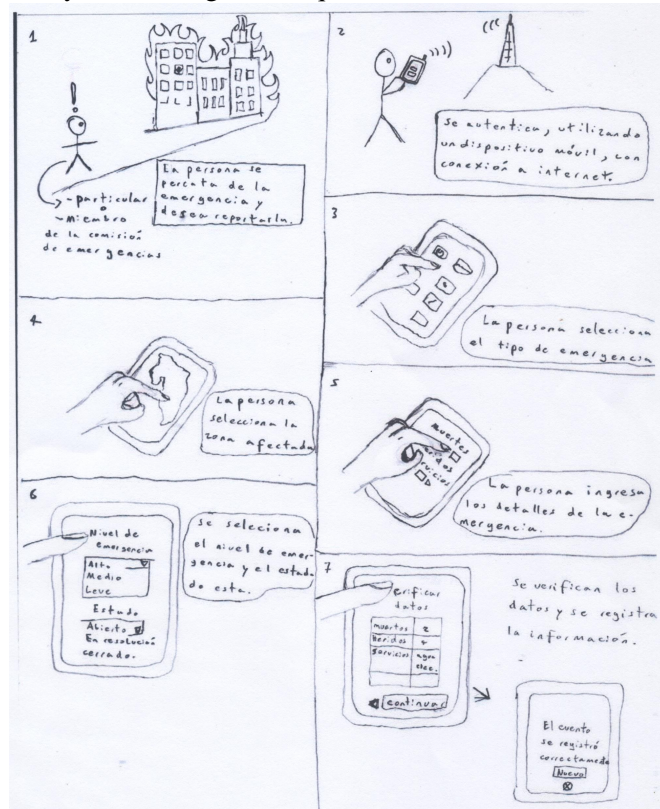 1
La persona se
percata de la
emergencia y
desea reportarla.
- particular
o
- Miembro
de la comisión
de emergencias
2
Se autentica, utilizando
un dispositivo móvil, con
conexión a internet.
3
La persona selecciona
el tipo de emergencia
4
La persona
selecciona la
zona afectada
5
muertes
eridos
rvicios
La persona ingresa
los detalles de la e-
mergencia.
6
Nivel de
emergencia
Alto
Medio
Leve
Estado
Abierto
En resolución
cerrado.
se selecciona
el nivel de emer-
gencia y el estado
de esta.
7
erificar
datos
muertos 2
heridos 4
servicios agua
elec.
continuar
Se verifican los
datos y se registra
la información.
El evento
se registró
correctamente
Nuevo